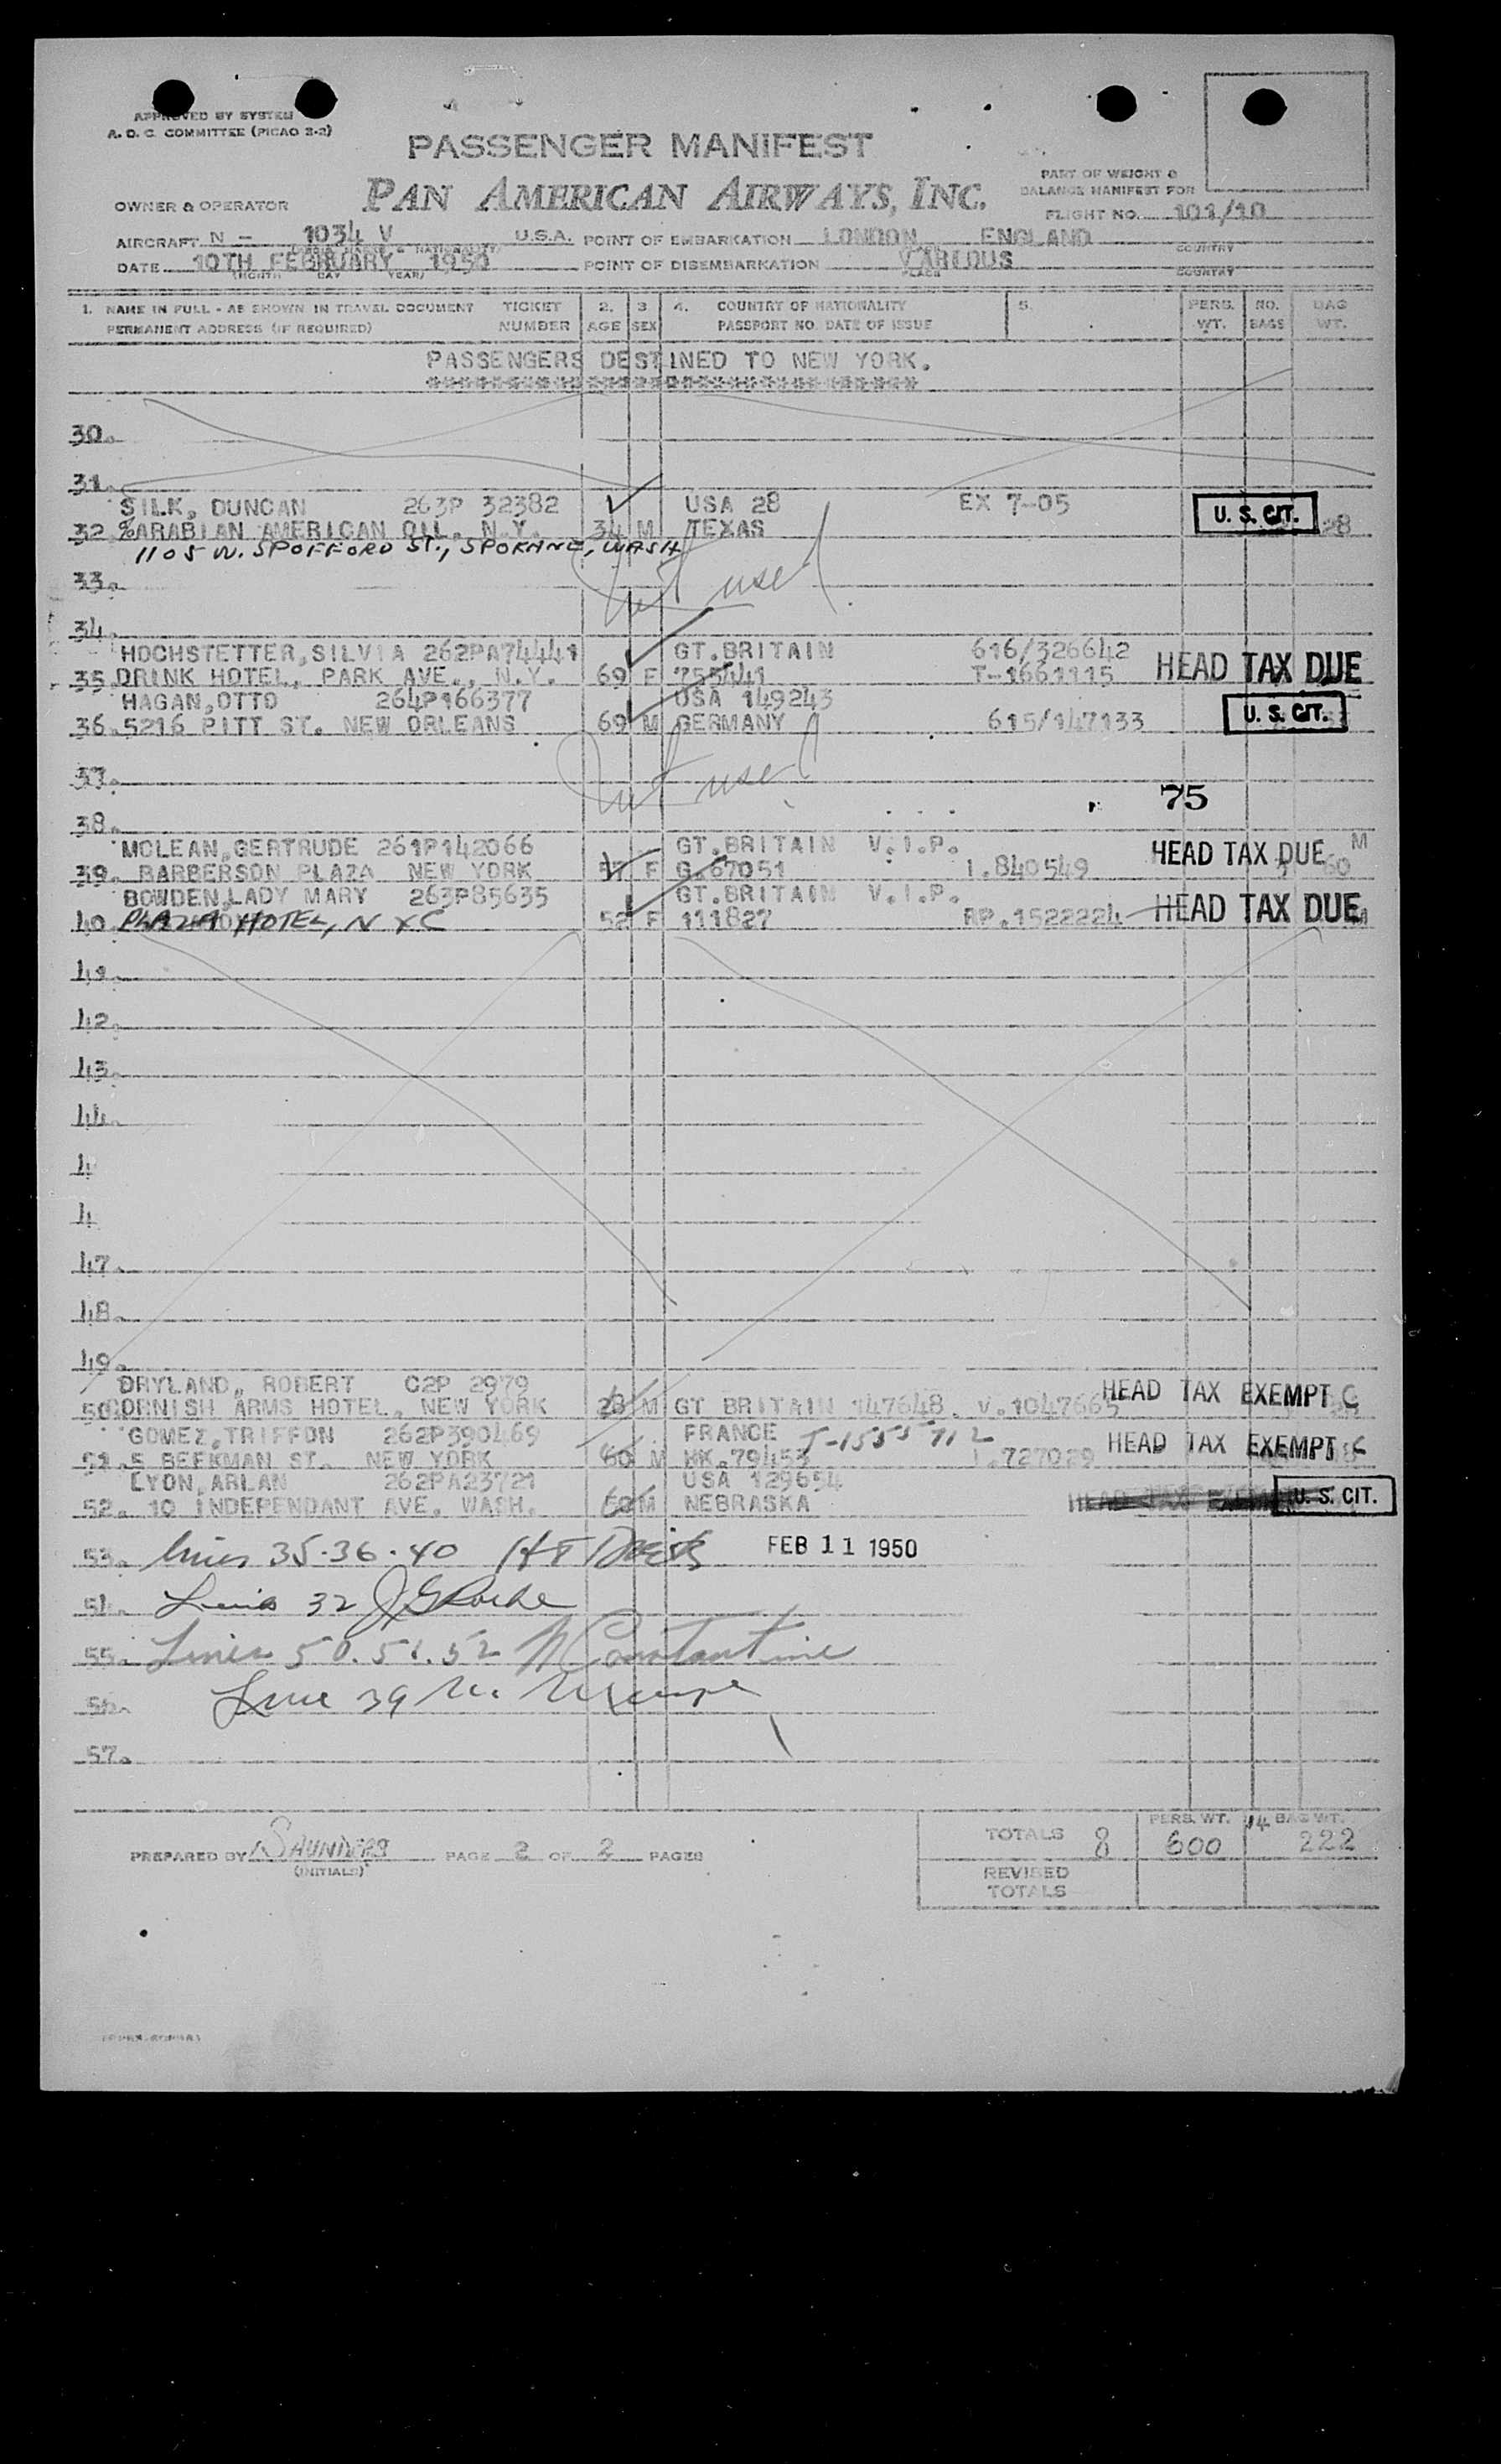 APPROVED BY SYSTEM
A. O. C. COMMITTEE (PICAO 2-2)
PASSENGER MANIFEST
PAN AMERICAN AIRWAYS, INC.
PART OF WEIGHT &
BALANCE MANIFEST FOR
FLIGHT NO. 101/10
OWNER & OPERATOR
AIRCRAFT N - 1034 V U.S.A. POINT OF EMBARKATION LONDON ENGLAND
COUNTRY
DATE 10TH FEBRUARY 1950 POINT OF DISEMBARKATION VARIOUS
(MONTH DAY YEAR) PLACE COUNTRY
1. NAME IN FULL - AS SHOWN IN TRAVEL DOCUMENT TICKET 2. 3 4. COUNTRY OF NATIONALITY 5. PERS. NO. BAG
PERMANENT ADDRESS (IF REQUIRED) NUMBER AGE SEX PASSPORT NO. DATE OF ISSUE WT. BAGS WT.
PASSENGERS DESTINED TO NEW YORK.
30.
31.
SILK, DUNCAN 263P 32382 USA 28 EX 7-05
32. %ARABIAN AMERICAN OIL, N.Y. 34 M TEXAS U. S. CIT. 28
1105 W. SPOFFORD ST., SPOKANE, WASH
33. Not used
34.
HOCHSTETTER, SILVIA 262PA74441 GT.BRITAIN 616/326642
35. DRINK HOTEL, PARK AVE., N.Y. 69 F 755441 T-1661115 HEAD TAX DUE
HAGAN, OTTO 264P166377 USA 149243
36. 5216 PITT ST. NEW ORLEANS 69 M GERMANY 615/147133 U. S. CIT.
37. Not used
75
38.
MCLEAN, GERTRUDE 261P142066 GT.BRITAIN V.I.P. M
39. BARBERSON PLAZA NEW YORK 57 F G.67051 I.840549 HEAD TAX DUE 60
BOWDEN, LADY MARY 263P85635 GT.BRITAIN V.I.P.
40. PLAZA HOTEL, N Y C 52 F 111827 RP.1522224 HEAD TAX DUE M
41.
42.
43.
44.
4
4
47.
48.
49.
DRYLAND, ROBERT C2P 2979
50. CORNISH ARMS HOTEL, NEW YORK 28 M GT BRITAIN 147648. V.1047665 HEAD TAX EXEMPT C
GOMEZ, TRIFFON 262P390469 FRANCE T-1555712
51. 5 BEEKMAN ST. NEW YORK 60 M HK.79453 I.727029 HEAD TAX EXEMPT C
LYON, ARLAN 262PA23721 USA 129654
52. 10 INDEPENDANT AVE. WASH. M NEBRASKA HEAD TAX EXEMPT U. S. CIT.
53. Lines 35-36-40 FEB 11 1950
54. Line 32
55. Lines 50.51.52 Constantine
56. Line 39
57.
TOTALS 8 PERS. WT. 600 14 BAG WT. 222
PREPARED BY SAUNDERS PAGE 2 OF 2 PAGES
(INITIALS)
REVISED
TOTALS